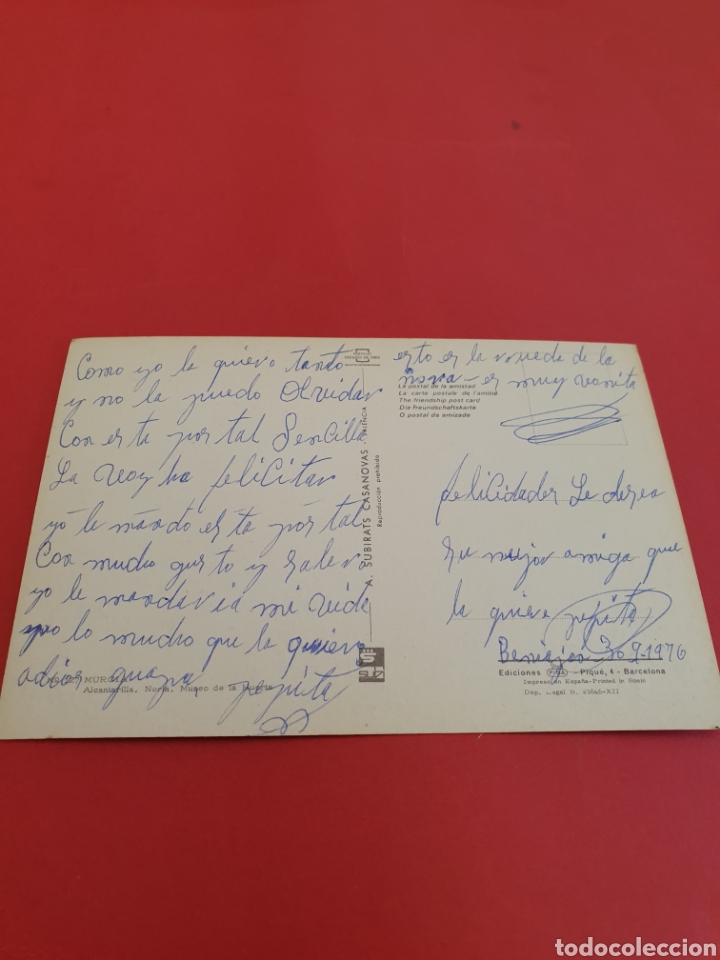 Como yo la quiero tanto
y no la puedo Olvidar
Con esta postal Sencilla
La voy ha felicitar
yo le mando esta postal
Con mucho gusto y Salero
yo le mandaria mi vida
lo mucho que la quiero
adios guapa pepita
MURCIA
Alcantarilla, Noria, Museo de la Huerta
A. SUBIRATS CASANOVAS - VALENCIA
Reproducción prohibida
esto es la rrueda de la
ñora - es muy vonita
La postal de la amistad
La carte postale de l'amitié
The friendship post card
Die Freundschaftskarte
O postal da amizade
felicidades Le desea
su mejor amiga que
la quiere pepita
1976
Ediciones - Piqué, 4 - Barcelona
Impreso en España-Printed in Spain
Dep. Legal B.
todocoleccion